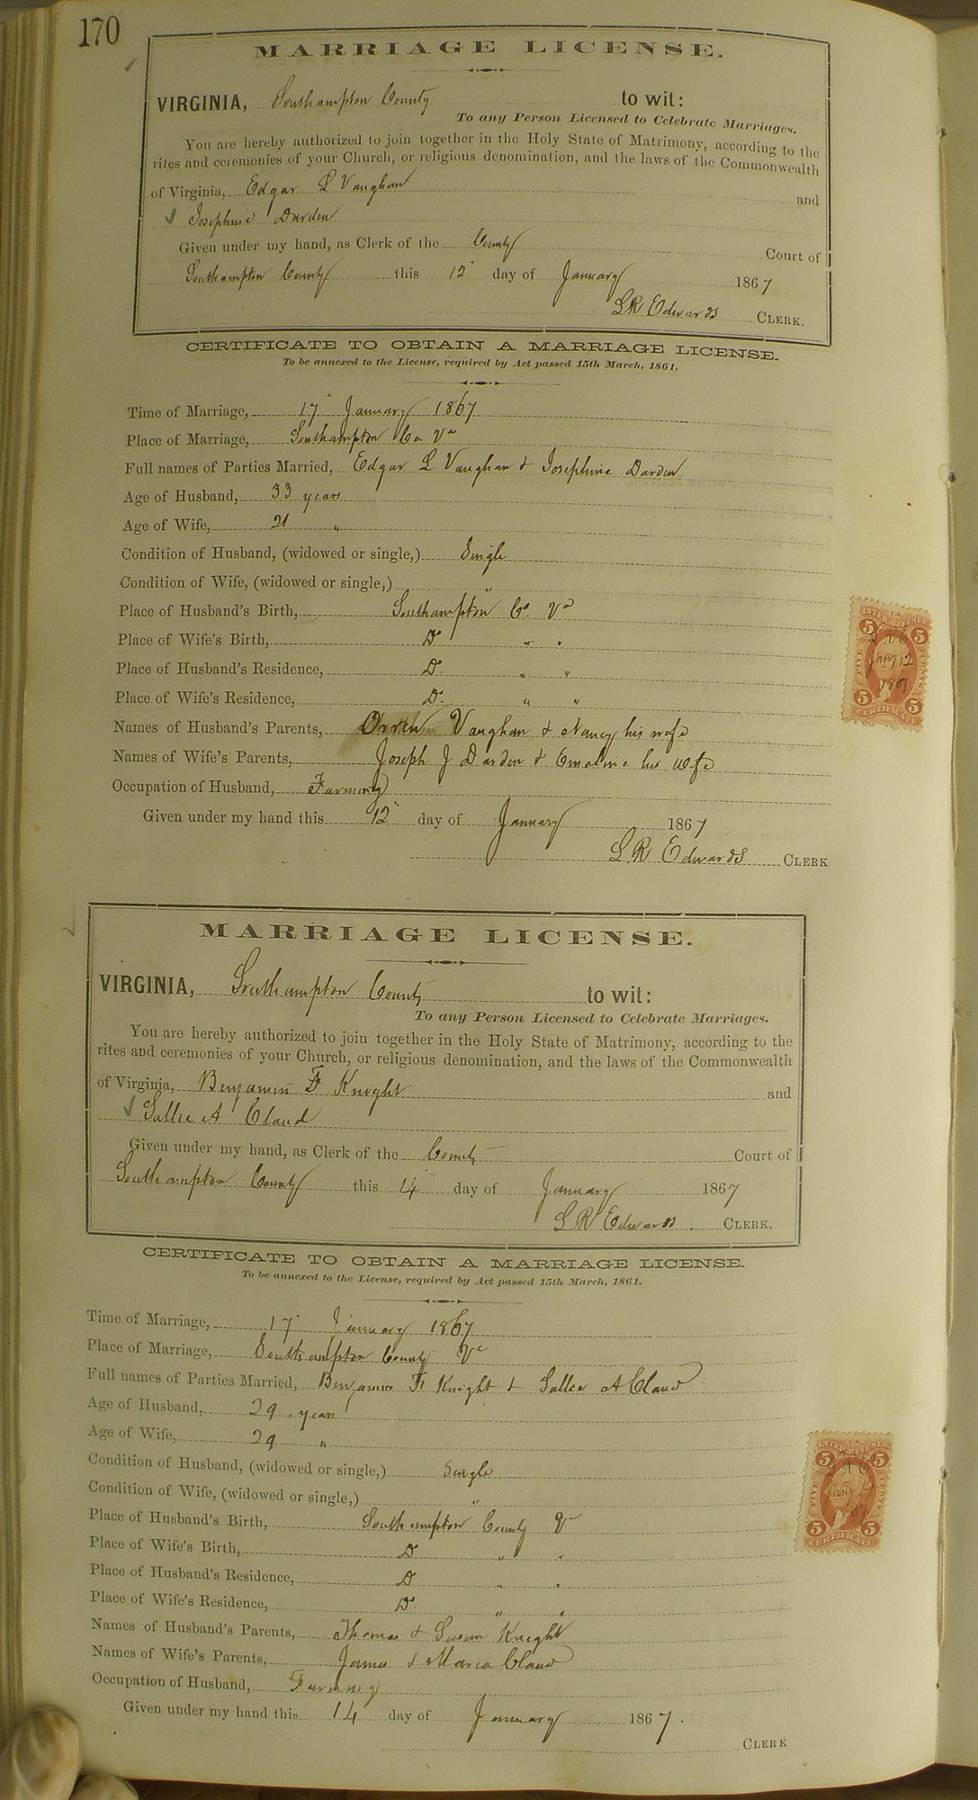 170
MARRIAGE LICENSE.
VIRGINIA, Southampton County to wit:
To any Person Licensed to Celebrate Marriages.
You are hereby authorized to join together in the Holy State of Matrimony, according to the
rites and ceremonies of your Church, or religious denomination, and the laws of the Commonwealth
of Virginia, Edgar L Vaughan and
Josephine Darden
Given under my hand, as Clerk of the County Court of
Southampton County this 12 day of January 1867
L R Edwards CLERK.
CERTIFICATE TO OBTAIN A MARRIAGE LICENSE.
To be annexed to the License, required by Act passed 15th March, 1861.
Time of Marriage, 17 January 1867
Place of Marriage, Southampton Co Va
Full names of Parties Married, Edgar L Vaughan & Josephine Darden
Age of Husband, 33 years
Age of Wife, 21 "
Condition of Husband, (widowed or single,) Single
Condition of Wife, (widowed or single,) "
Place of Husband's Birth, Southampton Co. Va
Place of Wife's Birth, Do " "
Place of Husband's Residence, Do " "
Place of Wife's Residence, Do " "
Names of Husband's Parents, Vaughan & Nancy his wife
Names of Wife's Parents, Joseph J Darden & Emeline his wife
Occupation of Husband, Farming
Given under my hand this 12 day of January 1867
L R Edwards CLERK
5 5
FIVE CENTS
5 5
CERTIFICATE
MARRIAGE LICENSE.
VIRGINIA, Southampton County to wit:
To any Person Licensed to Celebrate Marriages.
You are hereby authorized to join together in the Holy State of Matrimony, according to the
rites and ceremonies of your Church, or religious denomination, and the laws of the Commonwealth
of Virginia, Benjamin F Knight and
Sallie A Claud
Given under my hand, as Clerk of the County Court of
Southampton County this 14 day of January 1867
L R Edwards CLERK.
CERTIFICATE TO OBTAIN A MARRIAGE LICENSE.
To be annexed to the License, required by Act passed 15th March, 1861.
Time of Marriage, 17 January 1867
Place of Marriage, Southampton County Va
Full names of Parties Married, Benjamin F Knight & Sallie A Claud
Age of Husband, 29 years
Age of Wife, 29 "
Condition of Husband, (widowed or single,) Single
Condition of Wife, (widowed or single,) "
Place of Husband's Birth, Southampton County Va
Place of Wife's Birth, Do " "
Place of Husband's Residence, Do " "
Place of Wife's Residence, Do " "
Names of Husband's Parents, Thomas & Susan Knight
Names of Wife's Parents, James & Maria Claud
Occupation of Husband, Farming
Given under my hand this 14 day of January 1867.
CLERK
5 5
FIVE CENTS
5 5
CERTIFICATE